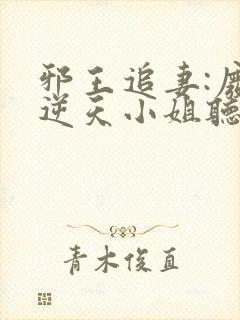 邪王追妻:廢
逆天小姐聽
青木俊直